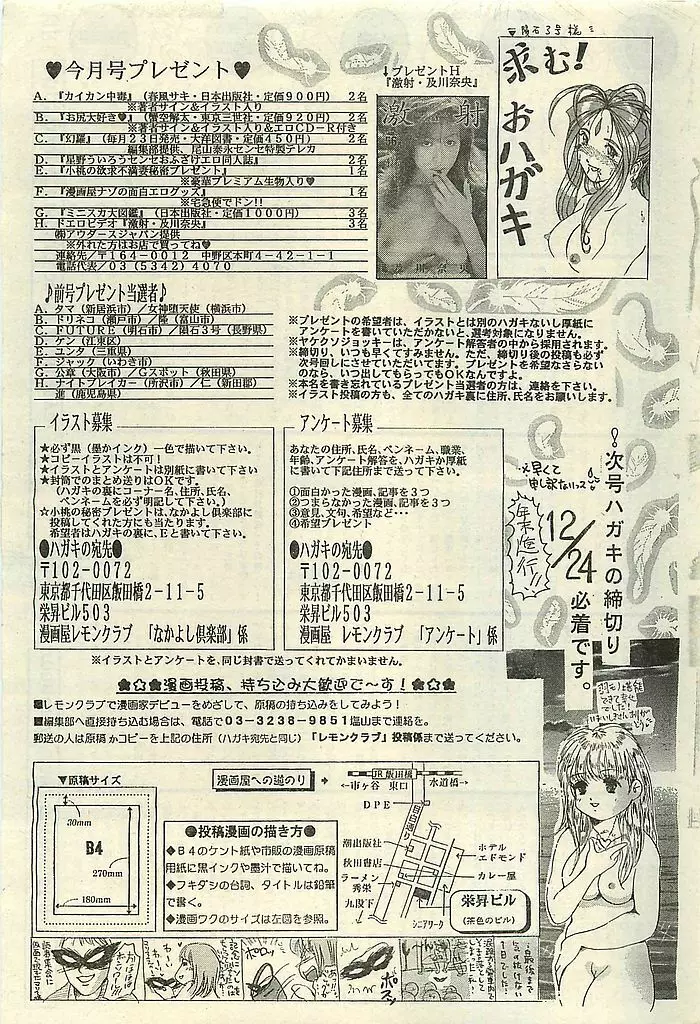 ♥今月号プレゼント♥
A.『カイカン中毒』（春風サキ・日本出版社・定価900円） 2名
※著者サイン&イラスト入り
B.『お尻大好き♥』（蟹空解太・東京三世社・定価920円） 2名
※著者サイン&イラスト入り&エロCD-R付き
C.『幻羅』（毎月23日発売・大洋図書・定価450円） 2名
編集部提供、尾山泰永センセ特製テレカ
D.『星野ういろうセンセおふざけエロ同人誌』 2名
E.『小桃の欲求不満妻秘密プレゼント』 1名
※豪華プレミアム生物入り♥
F.『漫画屋ナゾの面白エログッズ』 1名
※宅急便でドン!!
G.『ミニスカ大図鑑』（日本出版社・定価1000円） 3名
H.ドエロビデオ『激射・及川奈央』 3名
㈱アウダースジャパン提供
※外れた方はお店で買ってね♥
連絡先／〒164-0012 中野区本町4-42-1-1
電話代表／03（5342）4070
↓プレゼントH
『激射・及川奈央』
激射
及川奈央
求む!
おハガキ
♪前号プレゼント当選者♪
A.タマ（新居浜市）／女神堕天使（横浜市）
B.ドリネコ（瀬戸市）／隆（富山市）
C.FUTURE（明石市）／隕石3号（長野県）
D.ケン（江東区）
E.ユンタ（三重県）
F.ジャック（いわき市）
G.公章（大阪市）／Gスポット（秋田県）
H.ナイトブレイカー（所沢市）／仁（新田郡）
進（鹿児島県）
※プレゼントの希望者は、イラストとは別のハガキないし厚紙に
アンケートを書いていただかないと、選考対象になりません。
※ヤケクソジョッキーは、アンケート解答者の中から採用されます。
※締切り、いつも早くてすみません。ただ、締切り後の投稿も必ず
次号回しにさせていただいてます。プレゼントを希望なさらない
のなら、いつ出してもらってもOKなんですよ。
※本名を書き忘れているプレゼント当選者の方は、連絡を下さい。
※イラスト投稿の方も、全てのハガキ裏に住所、氏名をお願いします。
イラスト募集
★必ず黒（墨かインク）一色で描いて下さい。
★コピーイラストは不可！
★イラストとアンケートは別紙に書いて下さい
★封筒でのまとめ送りはOKです。
（ハガキの裏にコーナー名、住所、氏名、
ペンネームを必ず明記して下さい。）
☆小桃の秘密プレゼントは、なかよし倶楽部に
投稿してくれた方にも当たります。
希望者はハガキの裏に、Eと書いて下さい。
●ハガキの宛先●
〒102-0072
東京都千代田区飯田橋2-11-5
栄昇ビル503
漫画屋レモンクラブ 「なかよし倶楽部」係
アンケート募集
あなたの住所、氏名、ペンネーム、職業、
年齢、アンケート解答を、ハガキか厚紙
に書いて下記住所まで送って下さい。
①面白かった漫画、記事を3つ
②つまらなかった漫画、記事を3つ
③意見、文句、希望など…
④希望プレゼント
●ハガキの宛先●
〒102-0072
東京都千代田区飯田橋2-11-5
栄昇ビル503
漫画屋 レモンクラブ 「アンケート」係
※イラストとアンケートを、同じ封書で送ってくれてかまいません。
！次号ハガキの締切り
12/24
必着です。
年末進行!!
★✩★漫画投稿、持ち込み大歓迎で〜す！★✩★
■レモンクラブで漫画家デビューをめざして、原稿の持ち込みをしてみよう！
■編集部へ直接持ち込む場合は、電話で03-3238-9851塩山まで連絡を。
郵送の人は原稿かコピーを上記の住所（ハガキ宛先と同じ）「レモンクラブ」投稿係まで送ってください。
▼原稿サイズ
30mm
B4
270mm
180mm
漫画屋への道のり
●投稿漫画の描き方●
◆B4のケント紙や市販の漫画原稿
用紙に黒インクや墨汁で描いてね。
◆フキダシの台詞、タイトルは鉛筆
で書く。
◆漫画ワクのサイズは左図を参照。
JR飯田橋
←市ヶ谷 東口 水道橋→
DPE
目白通り
潮出版社
秋田書店
ラーメン
秀栄
九段下
ホテル
エドモンド
カレー屋
シニアワーク
栄昇ビル
（茶色のビル）